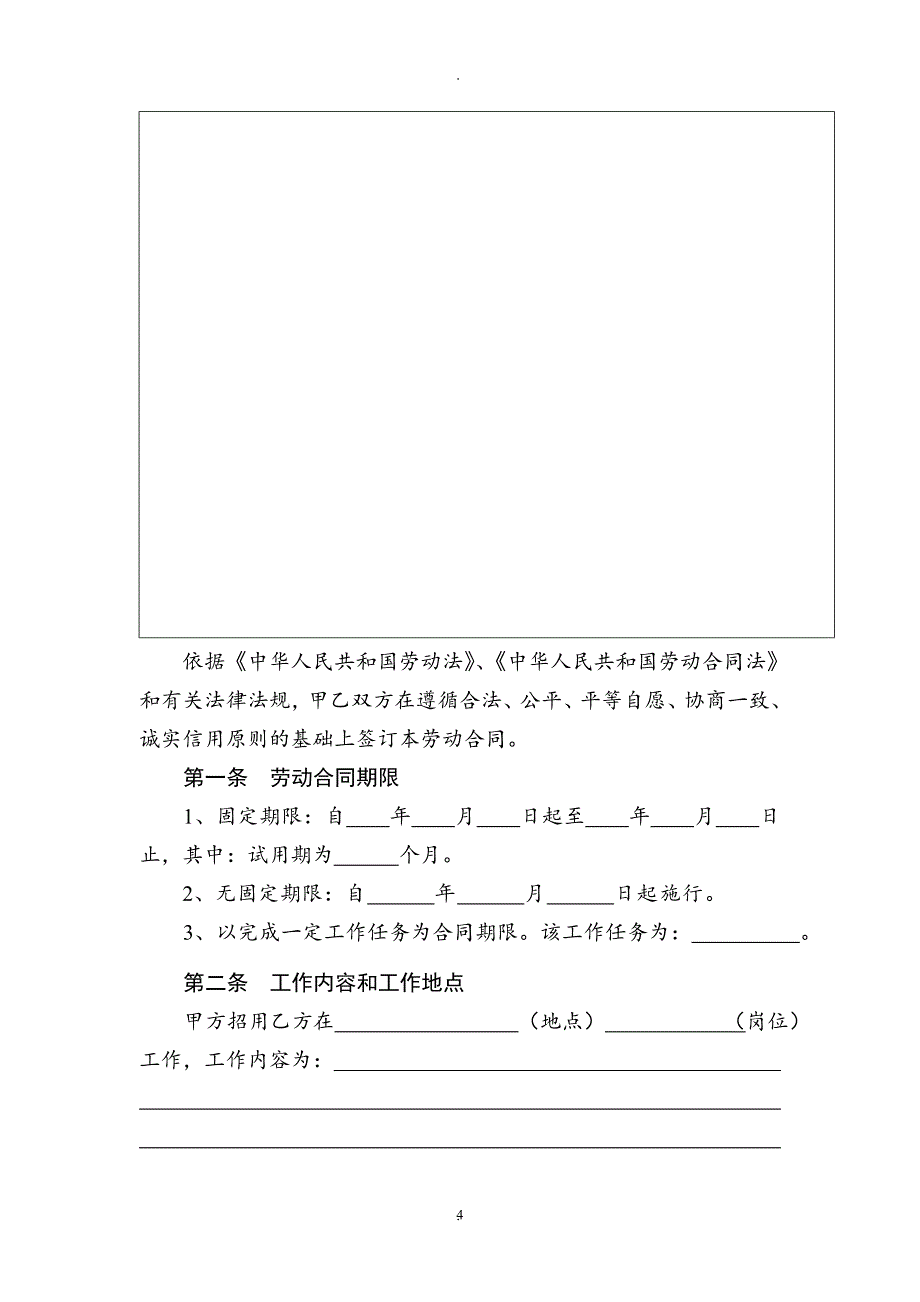 依据《中华人民共和国劳动法》、《中华人民共和国劳动合同法》
和有关法律法规，甲乙双方在遵循合法、公平、平等自愿、协商一致、
诚实信用原则的基础上签订本劳动合同。
第一条　劳动合同期限
1、固定期限：自____年____月____日起至____年____月____日
止，其中：试用期为______个月。
2、无固定期限：自______年______月______日起施行。
3、以完成一定工作任务为合同期限。该工作任务为：__________。
第二条　工作内容和工作地点
甲方招用乙方在_________________（地点）_____________（岗位）
工作，工作内容为：_________________________________________
4